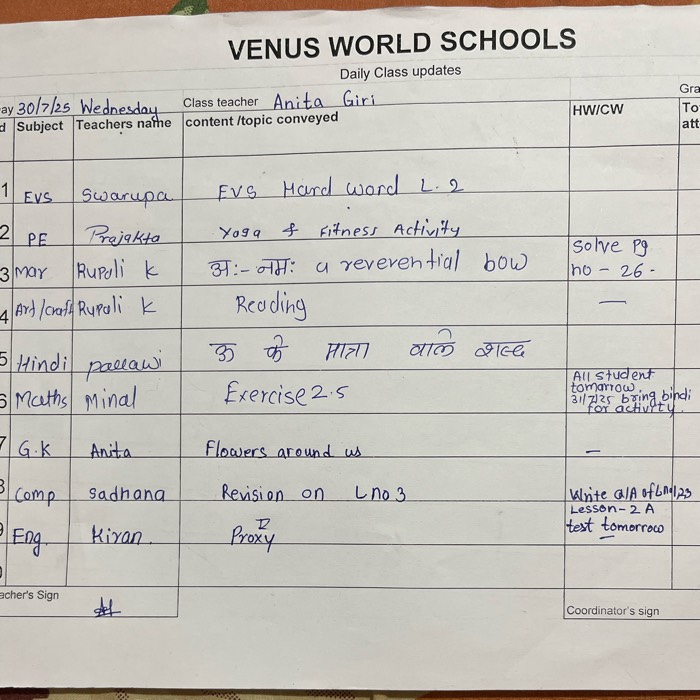 VENUS WORLD SCHOOLS
Daily Class updates
ay 30/7/25 Wednesday Class teacher Anita Giri Gra
d Subject Teachers name content /topic conveyed HW/CW To
att
1 EVS Swarupa EVS Hard word L. 2
2 PE Prajakta Yoga & Fitness Activity
3 Mar Rupali k अः- नमः a reverential bow Solve Pg
no - 26 -
4 Art/craft Rupali k Reading —
5 Hindi pallawi ऊ की मात्रा वाले शब्द
6 Maths Minal Exercise 2.5 All student
tomorrow
31/7/25 bring bindi
for activity
7 G.K Anita Flowers around us —
8 Comp Sadhana Revision on L no 3 Write Q/A of Lno1,2,3
9 Eng. Kiran Proxy Lesson - 2 A
test tomorrow
acher's Sign
Coordinator's sign